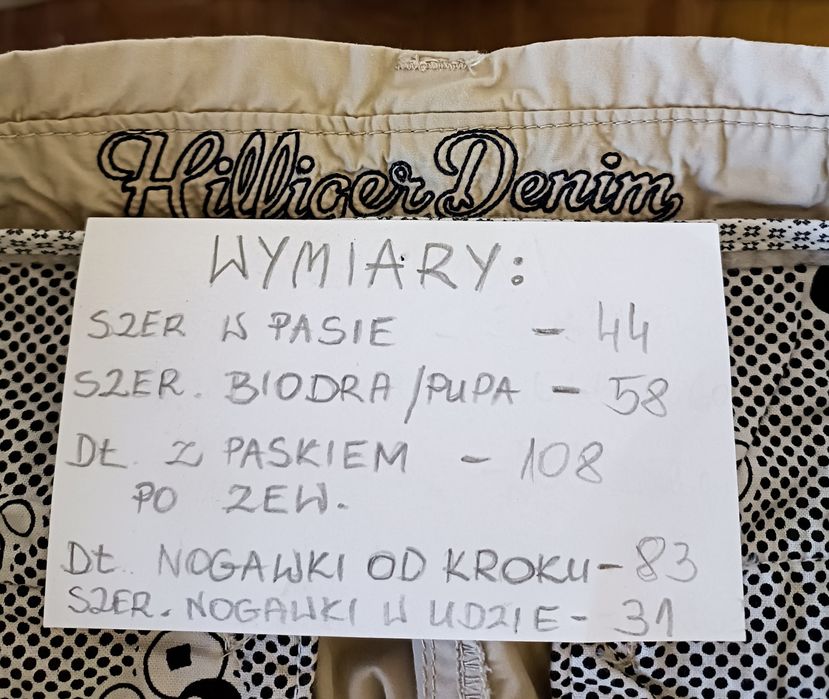 Hilliger Denim
WYMIARY:
SZER W PASIE - 44
SZER. BIODRA/PUPA - 58
DŁ. Z PASKIEM - 108
PO ZEW.
DŁ. NOGAWKI OD KROKU - 83
SZER. NOGAWKI W UDZIE - 31